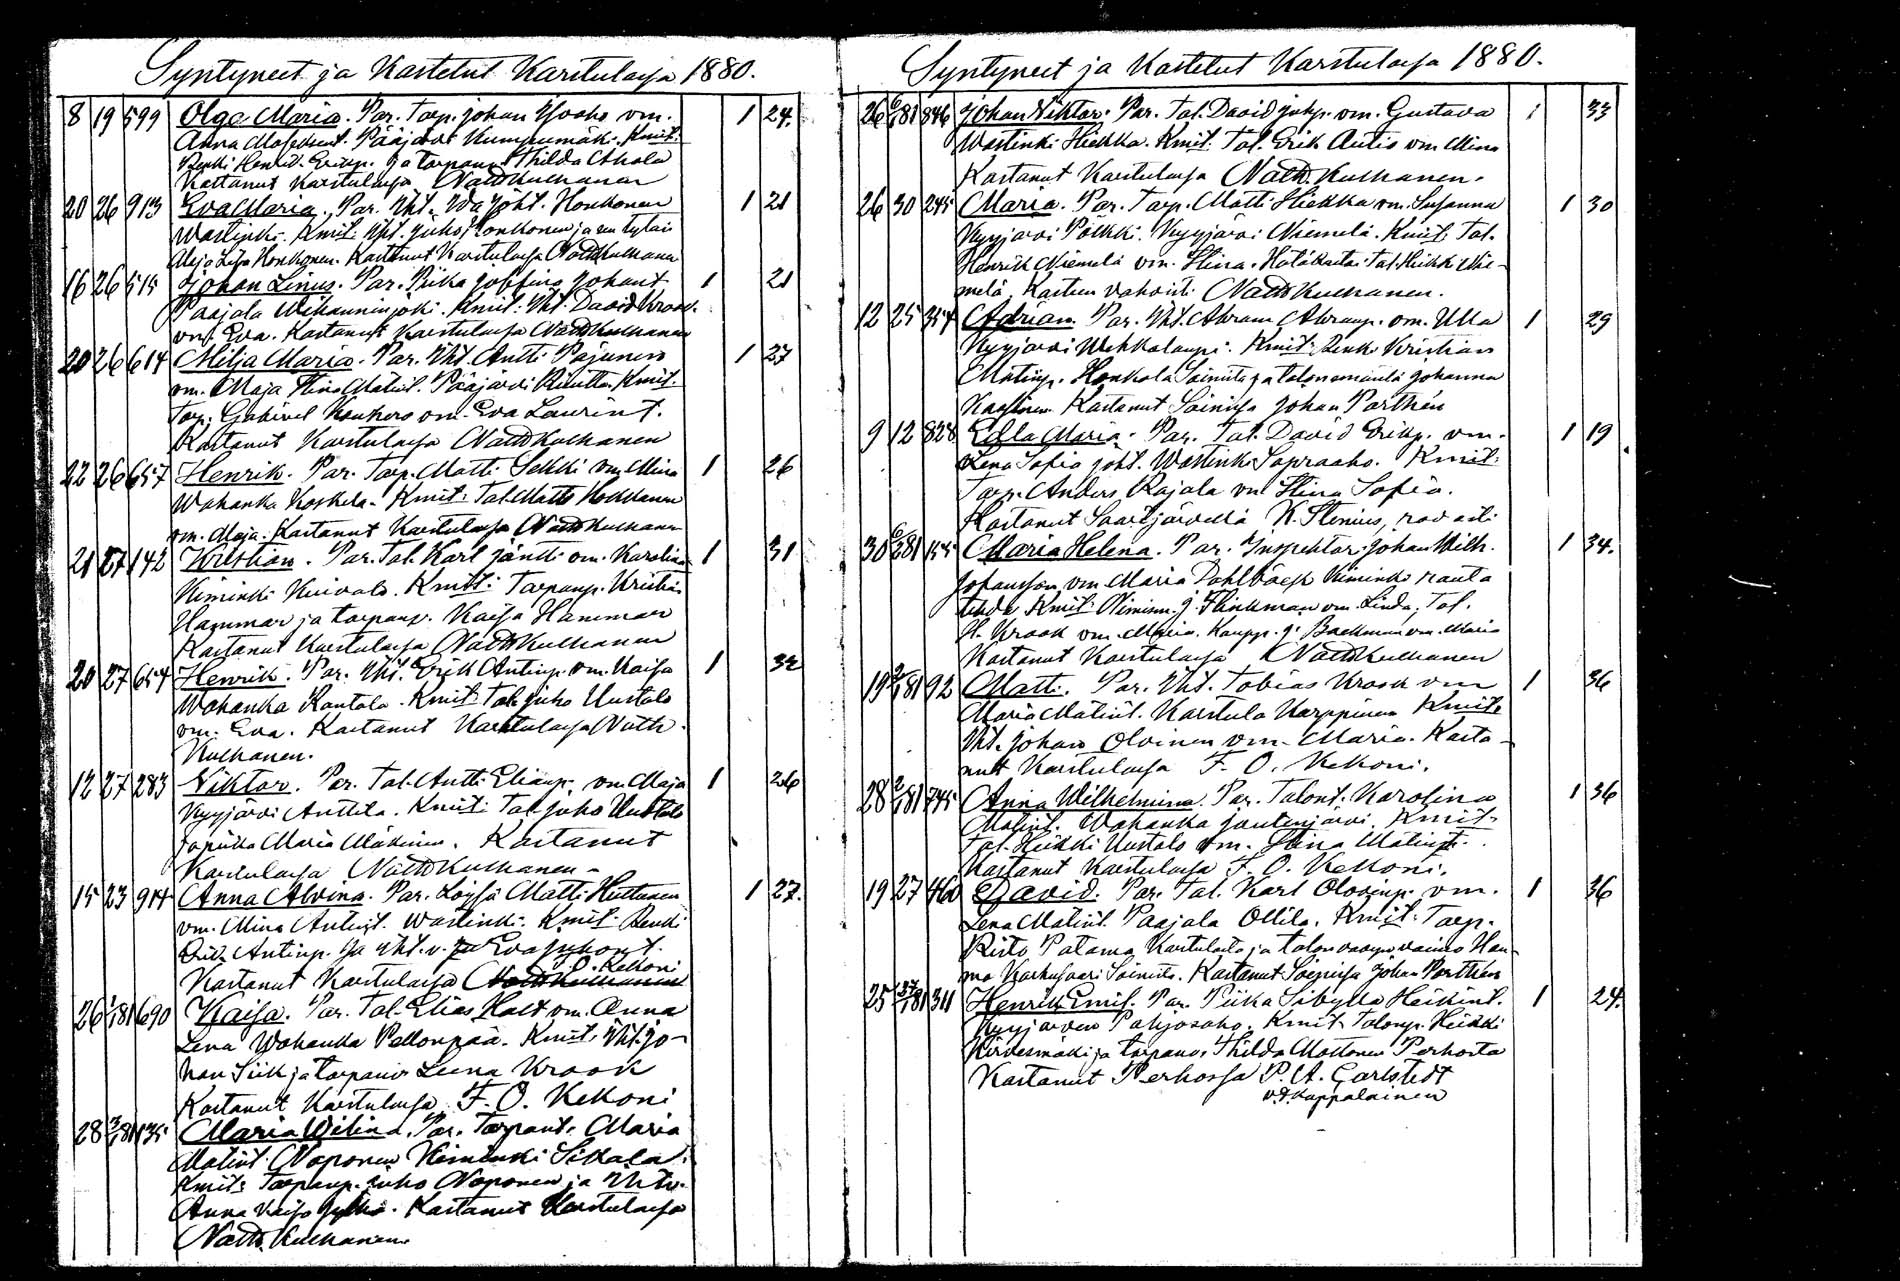 Syntyneet ja Kastetut Karstulassa 1880.
8 19 599 Olga Maria. Par. Torp. Johan Ysoaho vm. 1 24.
Anna Pääjärvi Kumpumäki. Kmit:
Renki Henrik Erikp. ja torpant. Thilda Ahola
Kastanut Karstulassa Nath Kulhanen
20 26 913 Eva Maria. Par. Iht. Ida Joht. Honkonen 1 21
Wastinki. Kmit: Iht. Juho Honkonen ja sen tytär
Liisa Honkonen. Kastanut Karstulassa Nath Kulhanen
16 26 515 Johan Linus. Par. Piika Josefina Johant. 1 21
Paajala Wihanninjoki. Kmit: Iht. David Krook
vm. Eva. Kastanut Karstulassa Nath Kulhanen
20 26 614 Milja Maria. Par. Iht. Antti Pajunen 1 27
vm. Maja Stina Matint. Pääjärvi Kmit.
Torp. Gabriel vm. Eva Laurint.
Kastanut Karstulassa Nath Kulhanen
22 26 657 Henrik. Par. Torp. Matti Sekki vm. Mina 1 26
Wahanka Koskela. Kmit: Tal. Matts
vm. Maja. Kastanut Karstulassa Nath Kulhanen
21 27 142 Kristian. Par. Tal. Karl Jäntti vm. Karolina 1 31
Kiminki Kuivala. Kmit: Torpanp. Kristian
Hammar ja torpanv. Kaisa Hammar
Kastanut Karstulassa Nath Kulhanen
20 27 654 Henrik. Par. Iht. Erik Antinp. vm. Kaisa 1 32
Wahanka Rantala. Kmit: Tal. Juho Uustalo
vm. Eva. Kastanut Karstulassa Nath.
Kulhanen.
12 27 283 Viktor. Par. Tal. Antti Eliasp. vm. Maja 1 26
Kyyjärvi Anttila. Kmit: Tal. Juho Uustalo
ja piika Maria Mäkinen. Kastanut
Karstulassa Nath Kulhanen.
15 23 914 Anna Alvina. Par. Loissi Matti Huttunen 1 27.
vm. Mina Antint. Wastinki. Kmit: Renki
Antinp. ja Iht. v. Eva Juhont.
F. O. Kekoni
Kastanut Karstulassa Nath Kulhanen
26 1/1 81 690 Kaisa. Par. Tal. Elias Holt vm. Anna
Lena Wahanka Pellonpää. Kmit. Iht. Jo-
han Siik ja torpanv. Leena Krook
Kastanut Karstulassa F. O. Kekoni
28 3/1 81 135 Maria Wilina. Par. Torpant. Maria
Matint. Noponen Kiminki Sikala.
Kmit: Torpanp. Juho Noponen ja Iht. v.
Anna Kaisa. Kastanut Karstulassa
Nath. Kulhanen.
Syntyneet ja Kastetut Karstulassa 1880.
26 6/1 81 846 Johan Viktor. Par. Tal. David Juhp. vm. Gustava 1 33
Wastinki Hiekka. Kmit: Tal. Erik Autio vm. Mina
Kastanut Karstulassa Nath. Kulhanen.
26 30 245 Maria. Par. Torp. Matti Hiekka vm. Susanna 1 30
Kyyjärvi Pölkki. Kyyjärvi Niemelä. Kmit: Tal.
Henrik Niemelä vm. Stina. Hätäkasta: Tal. Heikki Nie-
melä. Kasteen vahvisti Nath Kulhanen.
12 25 354 Adrian. Par. Iht. Abram Abramp. vm. Ulla 1 29
Kyyjärvi Wehkalampi. Kmit: Renki Kristian
Matinp. Honkala Soinista ja talonemäntä Johanna
Kastanut Soinissa Johan Parthén
9 12 828 Edla Maria. Par. Tal. David Erikp. vm. 1 19
Lena Sofia Joht. Wastinki Sopraaho. Kmit:
Torp. Anders Rajala vm. Stina Sofia.
Kastanut Saarijärvellä K. Stenius, rovasti
30 6/2 81 155 Maria Helena. Par. Inspehtor Johan Wilh. 1 34.
Johansson vm. Maria Dahlbäck Kiminki rauta
tehda Kmit: J. Flinkman vm. Linda, Tal.
H. Krook vm. Maria. Kaupp. J. Backman vm. Maria
Kastanut Karstulassa Nath Kulhanen
19 2/1 81 92 Matti. Par. Iht. Tobias Krook vm 1 36
Maria Matint. Karstula Karppinen Kmit:
Iht. Johan Olvinen vm. Maria. Kasta-
nut Karstulassa F. O. Kekoni.
28 2/1 81 745 Anna Wilhelmina. Par. Talont. Karolina 1 36
Matint. Wahanka Jautenjärvi. Kmit:
Tal. Heikki Uustalo vm. Stina Matint.
Kastanut Karstulassa F. O. Kekoni.
19 27 460 David. Par. Tal. Karl Olovinp. vm. 1 36
Lena Matint. Paajala Ollila. Kmit: Torp.
Risto Patama Karstulasta ja talon vaimo Han-
na Karhusaari Soinista. Kastanut Soinissa Johan Parthén
25 27/1 81 311 Henrik Emil. Par. Piika Sibylla Heikint. 1 24.
Kyyjärven Pahjosaho. Kmit: Talonp. Heikki
Kirvesmäki ja torpanv. Thilda Mottonen Perhosta
Kastanut Perhossa P. A. Carlstedt
v.t. kappalainen